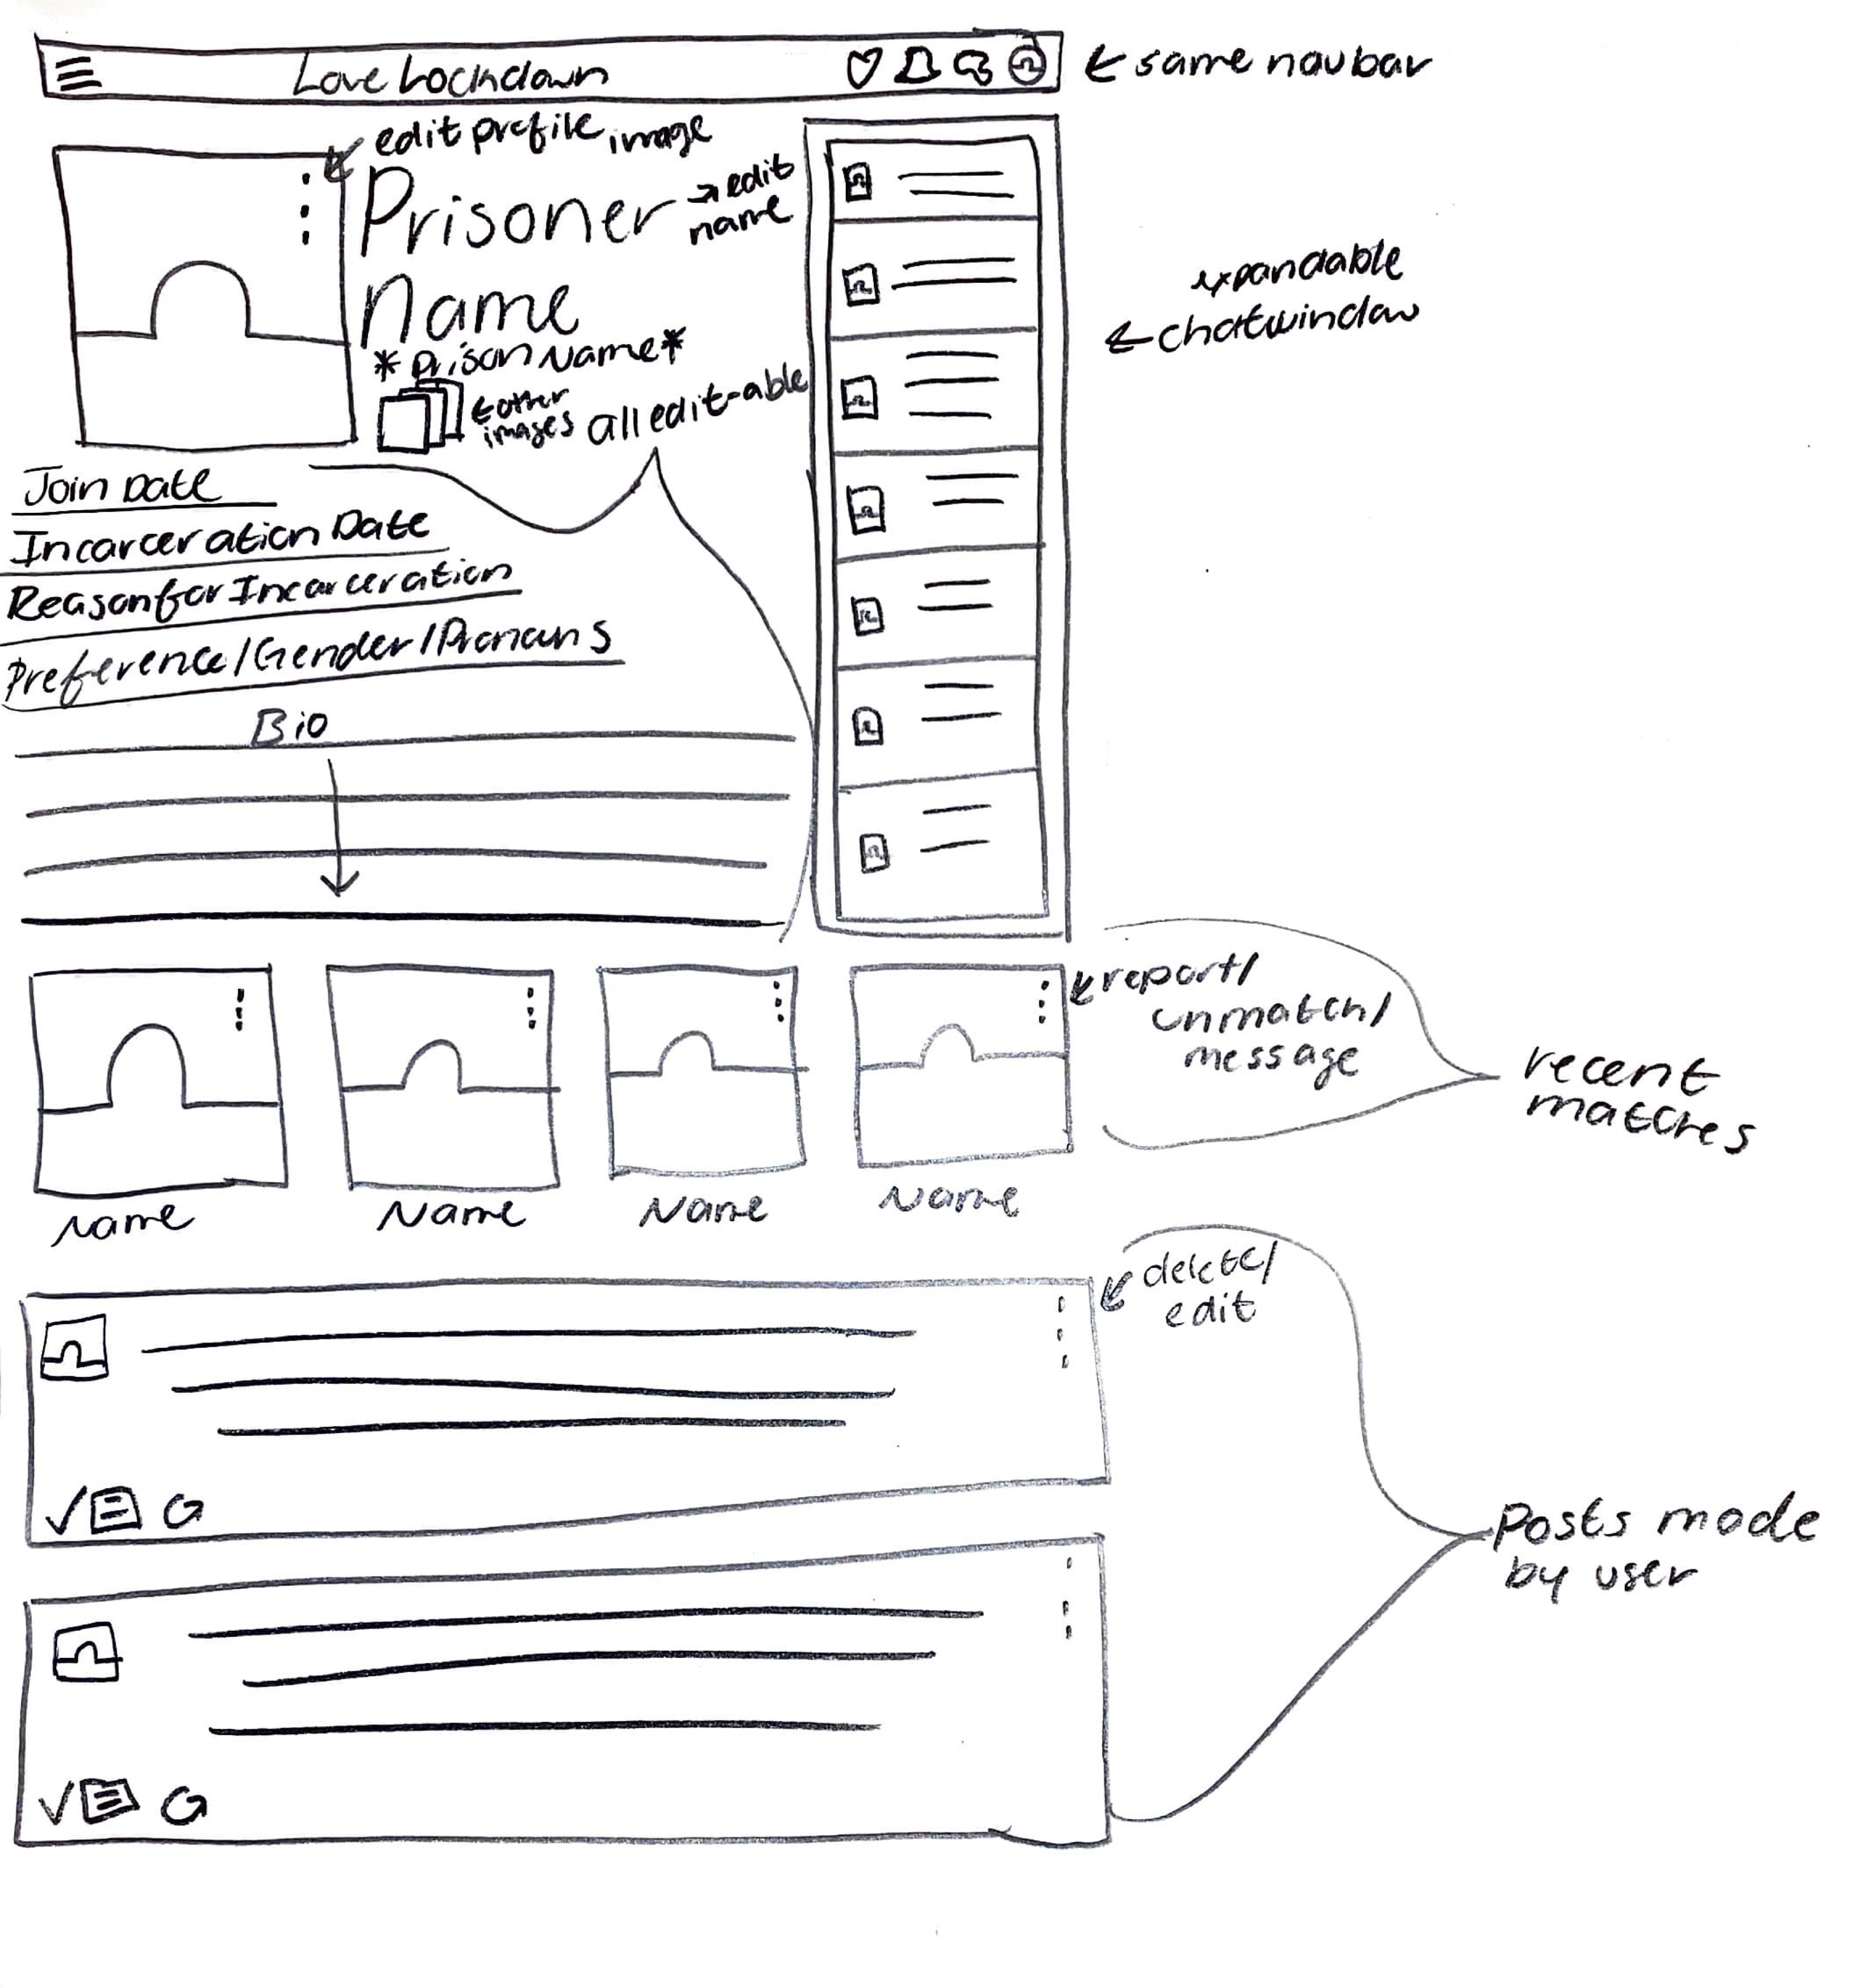 Love Lockdown
← same navbar
edit profile image
Prisoner
→ edit
name
Name
*Prison Name*
← other
images
all edit-able
expandable
← chatwindow
Join Date
Incarceration Date
Reason for Incarceration
Preference/Gender/Pronouns
Bio
report/
unmatch/
message
recent
matches
Name
Name
Name
Name
delete/
edit
Posts made
by user